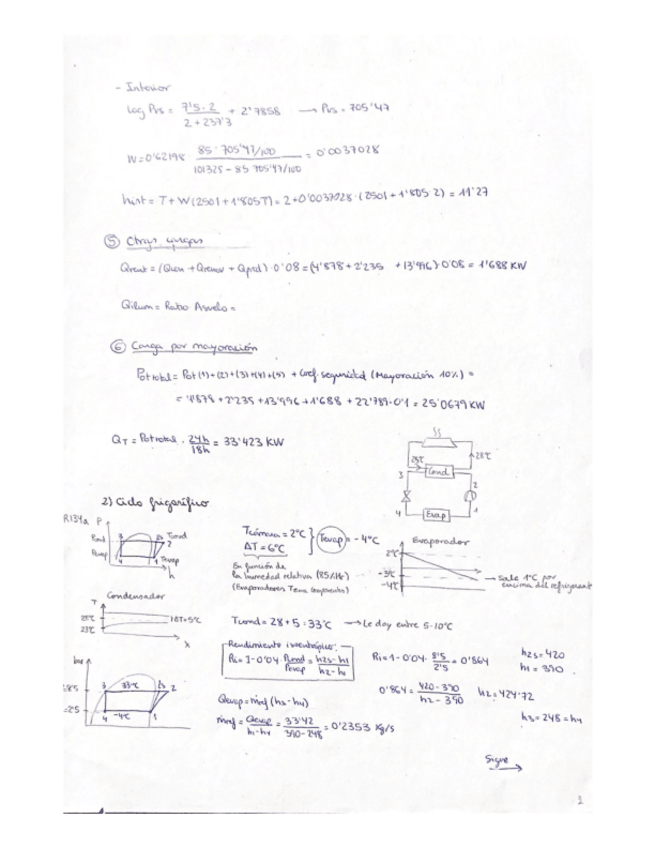 - Interior
log Pvs = 7'5·2 / 2+237'3 + 2'7858 → Pvs = 705'47
W = 0'62198 85·705'47/100 / 101325-85·705'47/100 = 0'0037028
hint = T + W(2501+1'805T) = 2+0'0037028·(2501+1'805·2) = 11'27
⑤ Otras cargas
Qvent = (Qcon + Qrenov + Qprod)·0'08 = (4'878+2'235 +13'996)·0'08 = 1'688 KW
Qilum = Ratio · Asuelo =
⑥ Carga por mayoración
Pot total = Pot (1)+(2)+(3)+(4)+(5) + Coef. seguridad (Mayoración 10%) =
= 4'878 + 2'235 + 13'996 + 1'688 + 22'789·0'1 = 25'0679 KW
QT = Pot total · 24h / 18h = 33'423 KW
23℃
28℃
3
Cond
2
4
Evap
1
2) Ciclo frigorífico
R134a
P
Pcond
Pevap
3
2s
2
Tcond
4
1
Tevap
h
Tcámara = 2℃
ΔT = 6℃
Tevap = -4℃
En función de
la humedad relativa (85%Hr)
Evaporador
2℃
-3℃
-4℃
→ Sale 1℃ por
encima del refrigerant
Condensador
T
28℃
23℃
ΔT=5℃
x
Tcond = 28+5 = 33℃ → Le doy entre 5-10℃
Rendimiento isentrópico:
Ri = 1-0'04 · Pcond / Pevap = h2s-h1 / h2-h1
Ri = 1-0'04 · 8'5 / 2'5 = 0'864
h2s = 420
h1 = 390
0'864 = 420-390 / h2-390
h2 = 424'72
h3 = 248 = h4
bar
8'5
2'5
3
33℃
2s
2
4
-4℃
1
Qevap = ṁref (h1-h4)
ṁref = Qevap / h1-h4 = 33'42 / 390-248 = 0'2353 Kg/s
Sigue
→
1